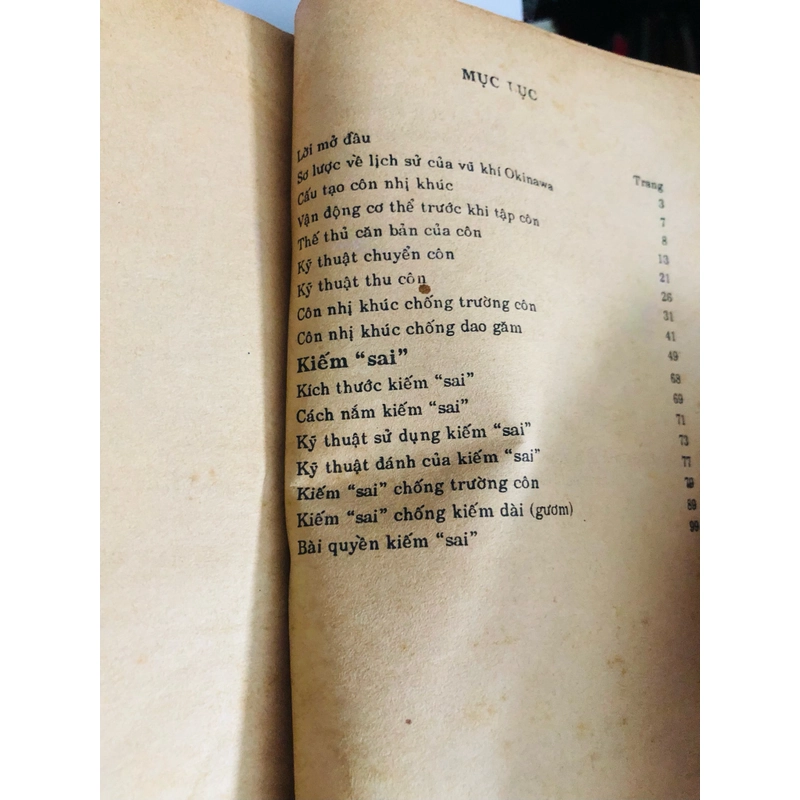 MỤC LỤC
Trang
Lời mở đầu 3
Sơ lược về lịch sử của vũ khí Okinawa 7
Cấu tạo côn nhị khúc 8
Vận động cơ thể trước khi tập côn 13
Thế thủ căn bản của côn 21
Kỹ thuật chuyển côn 26
Kỹ thuật thu côn 31
Côn nhị khúc chống trường côn 41
Côn nhị khúc chống dao găm 49
Kiếm “sai” 68
Kích thước kiếm “sai” 69
Cách nắm kiếm “sai” 71
Kỹ thuật sử dụng kiếm “sai” 73
Kỹ thuật đánh của kiếm “sai” 77
Kiếm “sai” chống trường côn 79
Kiếm “sai” chống kiếm dài (gươm) 89
Bài quyền kiếm “sai” 99